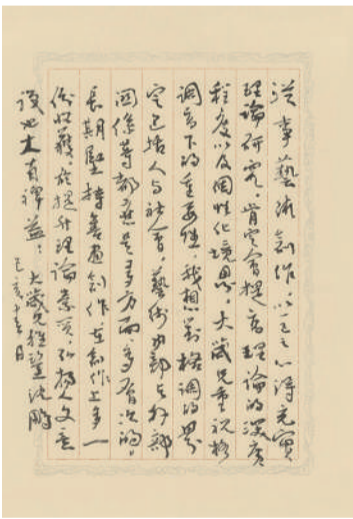 從事藝術創作，以一己之心得充實
理論研究，肯定會提高理論的深廣
程度以及個性化境界。大箴兄重視格
調高下的重要性，我想對格調的界
定包括人与社會，藝術内部与外部
關係等都應是多方面、多層次的。
長期堅持書畫創作，在創作上多一
份收穫，於提升理論素質，弘揚人文意
識必大有裨益。大箴兄雅鑒 沈鵬
己亥